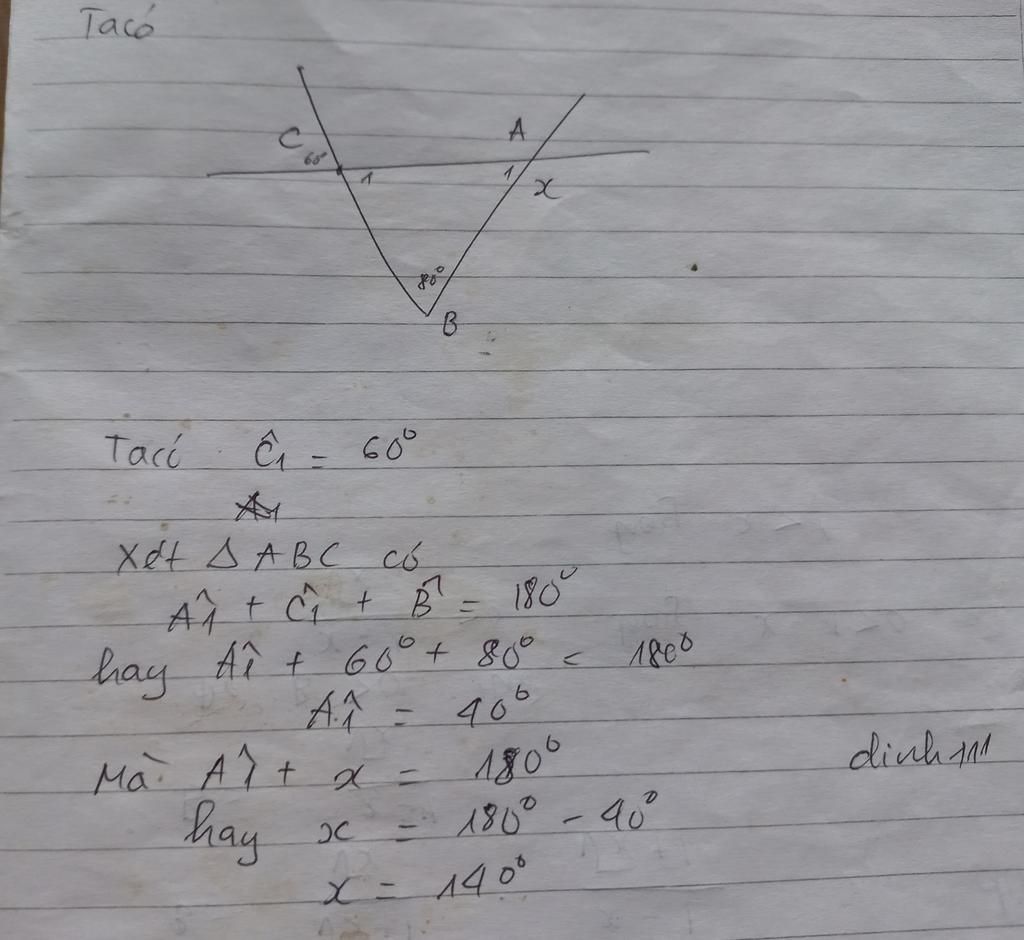 Ta có
C 60° 1
A
1 x
80°
B
Ta có Ĉ1 = 60°
Xét Δ ABC có
Â1 + Ĉ1 + B̂ = 180°
hay Â1 + 60° + 80° = 180°
Â1 = 40°
Mà Â1 + x = 180°
dinh111
hay x = 180° - 40°
x = 140°